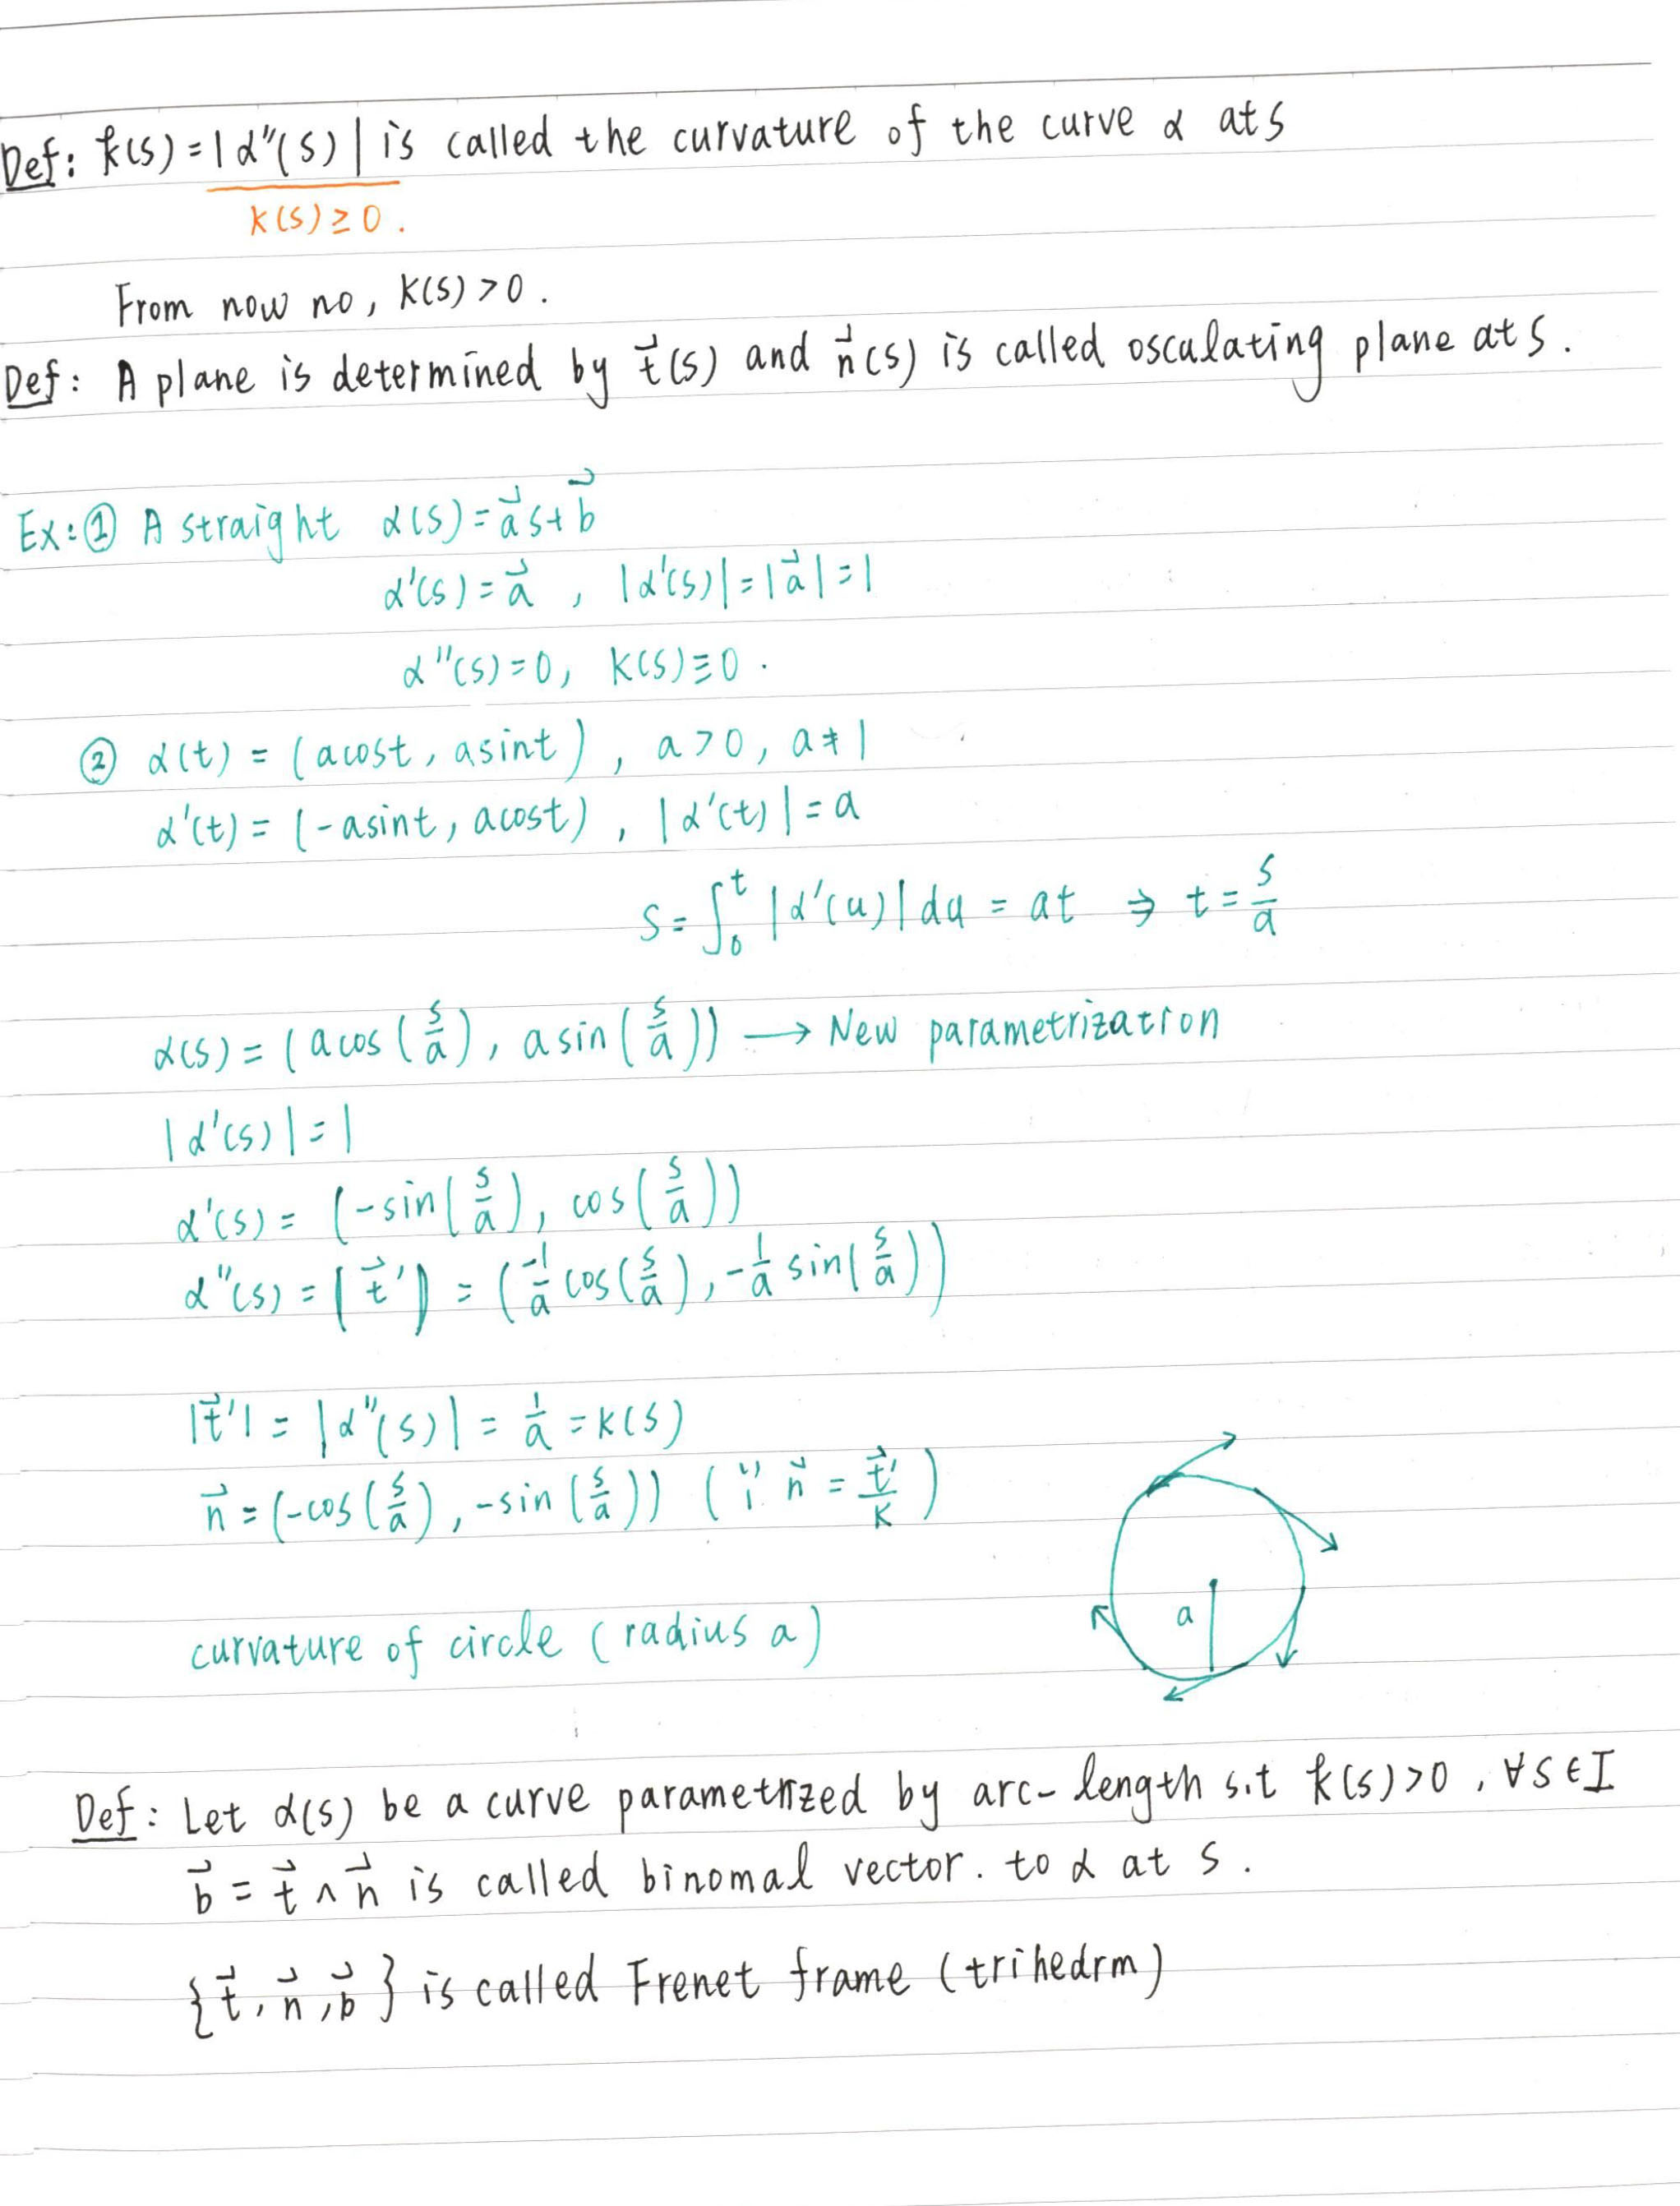 Def: k(s) = |α''(s)| is called the curvature of the curve α at s
k(s) ≥ 0.
From now no, k(s) > 0.
Def: A plane is determined by t⃗(s) and n⃗(s) is called osculating plane at s.
Ex: ① A straight α(s) = a⃗s + b⃗
α'(s) = a⃗ , |α'(s)| = |a⃗| = 1
α''(s) = 0, k(s) ≡ 0.
② α(t) = (acost, asint), a > 0, a ≠ 1
α'(t) = (-asint, acost), |α'(t)| = a
s = ∫₀ᵗ |α'(u)| du = at ⇒ t = s/a
α(s) = (a cos(s/a), a sin(s/a)) → New parametrization
|α'(s)| = 1
α'(s) = (-sin(s/a), cos(s/a))
α''(s) = (t⃗') = (-1/a cos(s/a), -1/a sin(s/a))
|t⃗'| = |α''(s)| = 1/a = k(s)
n⃗ = (-cos(s/a), -sin(s/a)) (∵ n⃗ = t⃗'/k)
a
curvature of circle (radius a)
Def: Let α(s) be a curve parametrized by arc-length s.t k(s) > 0, ∀s ∈ I
b⃗ = t⃗ ∧ n⃗ is called binomal vector. to α at s.
{t⃗, n⃗, b⃗} is called Frenet frame (trihedrm)